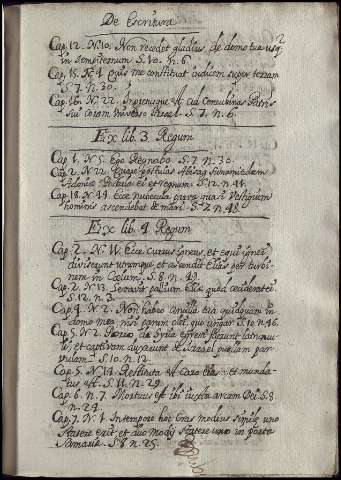 De Escritura
2
Cap. 12. N. 10. Non recedet gladius de domo tua usq
in sempiternum S. 10. n. 6.
Cap. 15. N. 4. Quis me constituat iudicem super terram
S. 7. n. 20.
Cap. 16. N. 22. Ingressusque ad Concubinas Patris
sui coram universo Israel. S. 7. n. 6.
Ex lib. 3. Regum
Cap. 1. N. 5. Ego Regnabo. S. 7. n. 30.
Cap. 2. N. 22. Quare postulas Abisag Sunamitidem
Adoniæ Postula ei et regnum. S. 12. n. 44.
Cap. 18. N. 44. Ecce nubecula parva quasi Vestigium
hominis ascendebat de mari. S. 2. n. 48.
Ex lib. 4. Regum
Cap. 2. N. 11. Ecce currus igneus, et equi ignei
diviserunt utrumque, et ascendit Elias per turbi-
nem in Cœlum. S. 8. n. 49.
Cap. 2. N. 13. Levavit pallium Eliæ quod ceciderat ei
S. 12. n. 3.
Cap. 4. N. 2. Non habeo Ancilla tua quidquam in
domo mea nisi parum olei, quo ungar S. 10. n. 46.
Cap. 5. N. 2. de Syria egressi fuerant latruncu-
li, et captivam duxerunt de Israel puellam par-
vulam. S. 10. n. 12.
Cap. 5. N. 14. Restituta est Caro eius et munda-
tus est. S. 11. n. 29.
Cap. 6. n. 7. Mortuus est ibi iuxta arcam Dei. S. 8.
n. 24.
Cap. 7. N. 1. In tempore hoc Cras modius similæ uno
statere erit, et duo modii statere uno in porta
Samariæ. S. 8. n. 25.